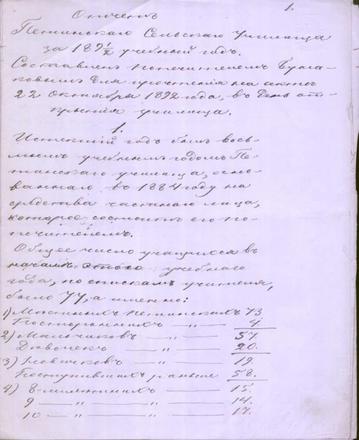 1.
Отчетъ
Петинскаго Сельскаго Училища
за 189½ учебный годъ.
Составленъ попечителемъ
для прочтенія на актѣ
22 Октября 1892 года, въ день от-
крытія училища.
1.
Истекшій годъ былъ вось-
мымъ учебнымъ годомъ Пе-
тинскаго училища, осно-
ваннаго въ 1884 году на
средства частнаго лица,
которое состоитъ его по-
печителемъ.
Общее число учащихся въ
началѣ этого учебнаго
года, по спискамъ учителя,
было 77, а именно:
1) Мѣстныхъ Петинскихъ 73.
Постороннихъ — „ — 4.
2) Мальчиковъ — „ — 57.
Дѣвочекъ — „ — 20.
3) Новичковъ — „ — 19.
Поступившихъ раньше 58.
4) 8-милѣтнихъ — „ — 15.
9 — „ — „ — 14.
10 — „ — „ — 17.